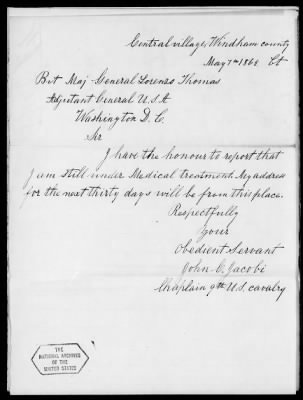 Central village, Windham county
May 7th 1868 Ct
Bvt Maj-General Lorenzo Thomas
Adjutant General U.S.A
Washington D.C.
Sir
I have the honour to report that
I am still under Medical treatment. My address
for the next thirty days will be from this place.
Respectfully
Your
Obedient Servant
John C. Jacobi
Chaplain 9th U.S. cavalry
THE
NATIONAL ARCHIVES
OF THE
UNITED STATES